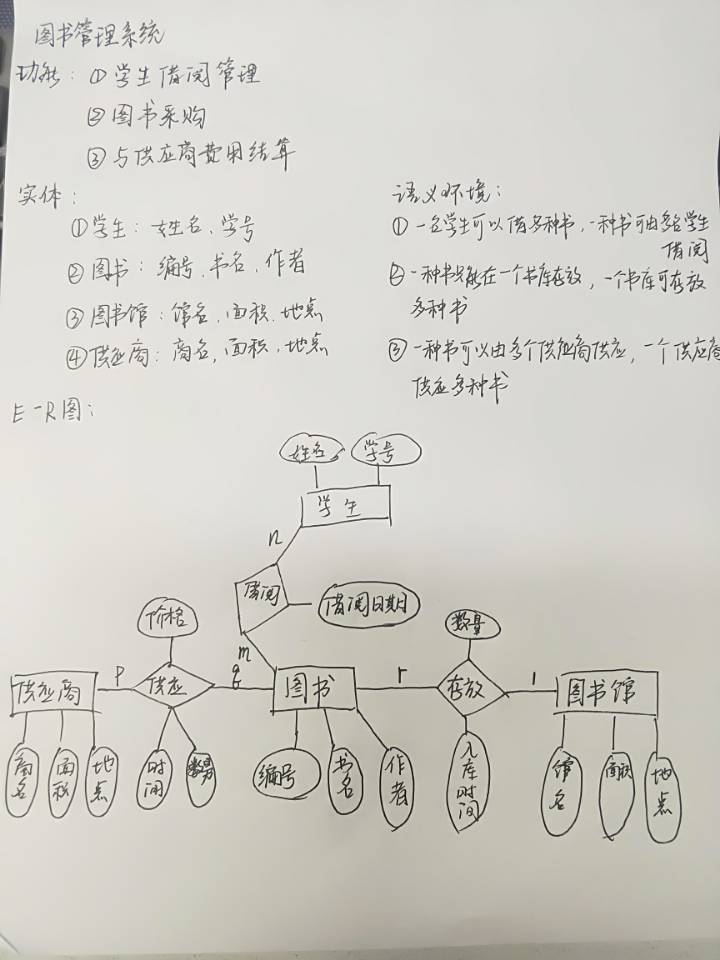 图书管理系统
功能：①学生借阅管理
②图书采购
③与供应商费用结算
实体：
①学生：姓名、学号
②图书：编号、书名、作者
③图书馆：馆名、面积、地点
④供应商：商名、面积、地点
语义环境：
①一名学生可以借多种书，一种书可由多名学生
借阅
②一种书只能在一个书库存放，一个书库可存放
多种书
③一种书可以由多个供应商供应，一个供应商
供应多种书
E-R图：
姓名 学号
学生
n
借阅 借阅日期
m
价格 数量
供应商 P 供应 图书 r 存放 1 图书馆
商名 面积 地点 时间 数量 编号 书名 作者 入库时间 馆名 面积 地点